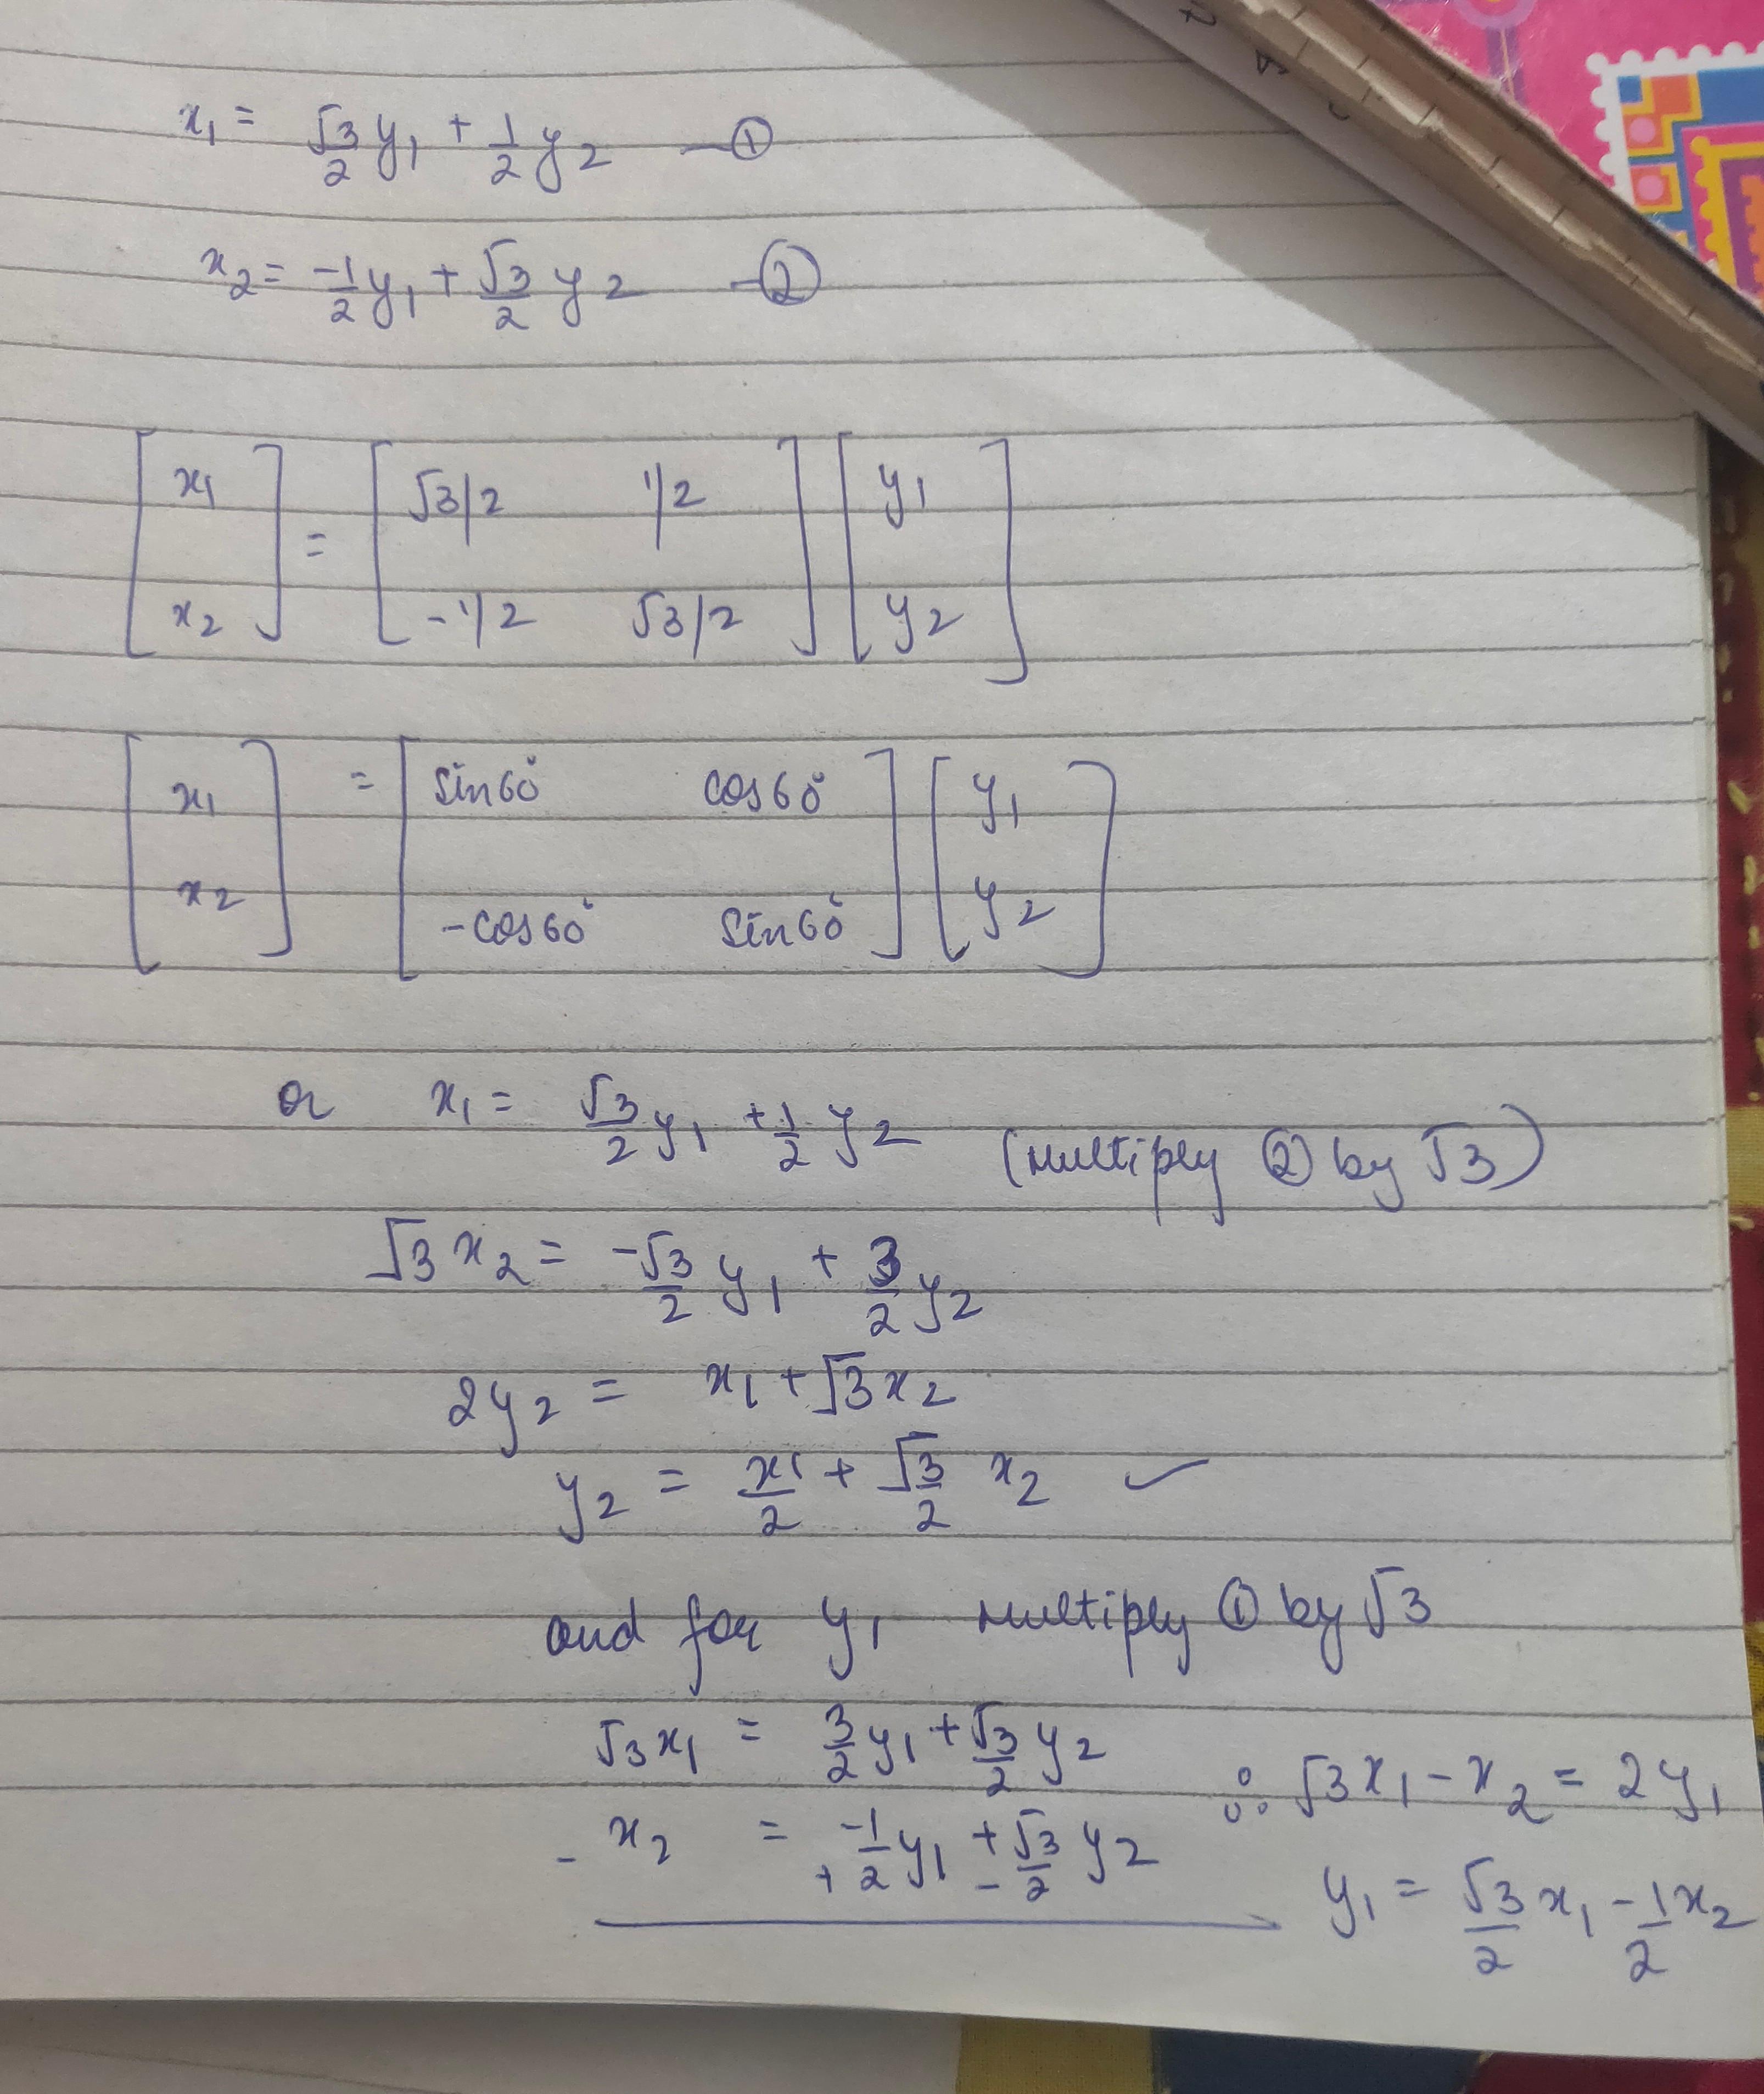 x₁ = √3/2 y₁ + 1/2 y₂ —①
x₂ = -1/2 y₁ + √3/2 y₂ —②
[x₁ x₂] = [√3/2 1/2 -1/2 √3/2] [y₁ y₂]
[x₁ x₂] = [sin60° cos60° -cos60° sin60°] [y₁ y₂]
or x₁ = √3/2 y₁ + 1/2 y₂ (multiply ② by √3)
√3 x₂ = -√3/2 y₁ + 3/2 y₂
2y₂ = x₁ + √3 x₂
y₂ = x₁/2 + √3/2 x₂ ✓
and for y₁ multiply ① by √3
√3 x₁ = 3/2 y₁ + √3/2 y₂
- x₂ = + -1/2 y₁ + - √3/2 y₂
∴ √3 x₁ - x₂ = 2y₁
y₁ = √3/2 x₁ - 1/2 x₂